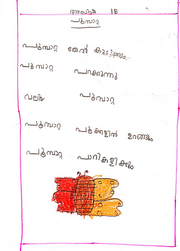 18
പൂമ്പാറ്റ
പൂമ്പാറ്റ തേൻ കുടിക്കും
പൂമ്പാറ്റ പറക്കുന്നു
വലിയ പൂമ്പാറ്റ
പൂമ്പാറ്റ പൂക്കളിൽ ഉറങ്ങും
പൂമ്പാറ്റ പാറികളിക്കും